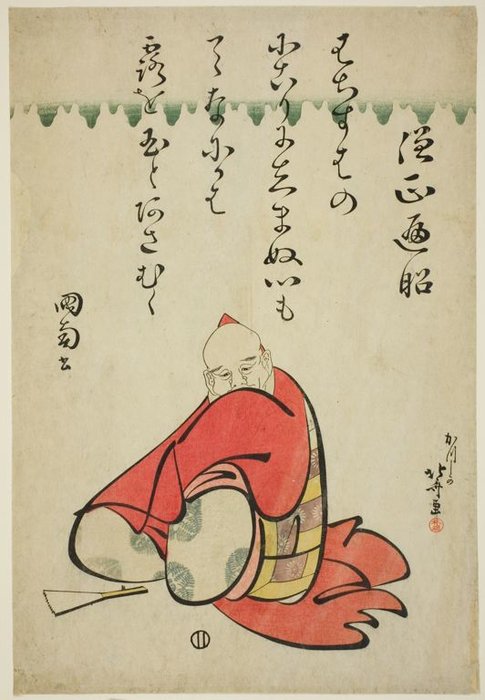 僧正遍昭
はちすはの
にこりにしまぬ心も
てなにかは
露を玉とあさむく